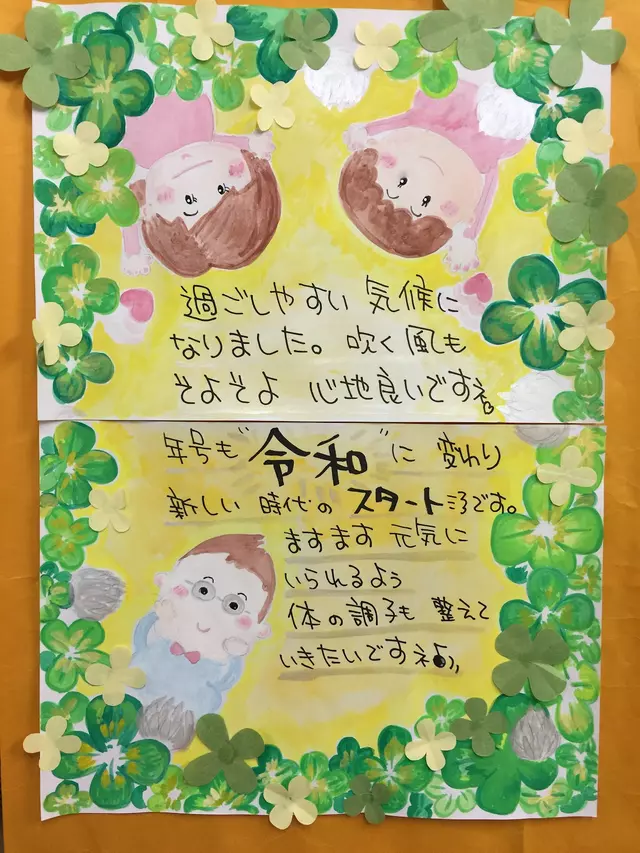 過ごしやすい 気候に
なりました。吹く風も
そよそよ 心地良いですね
年号も"令和"に 変わり
新しい 時代の スタートです。
ますます 元気に
いられるよう
体の調子も 整えて
いきたいですネ